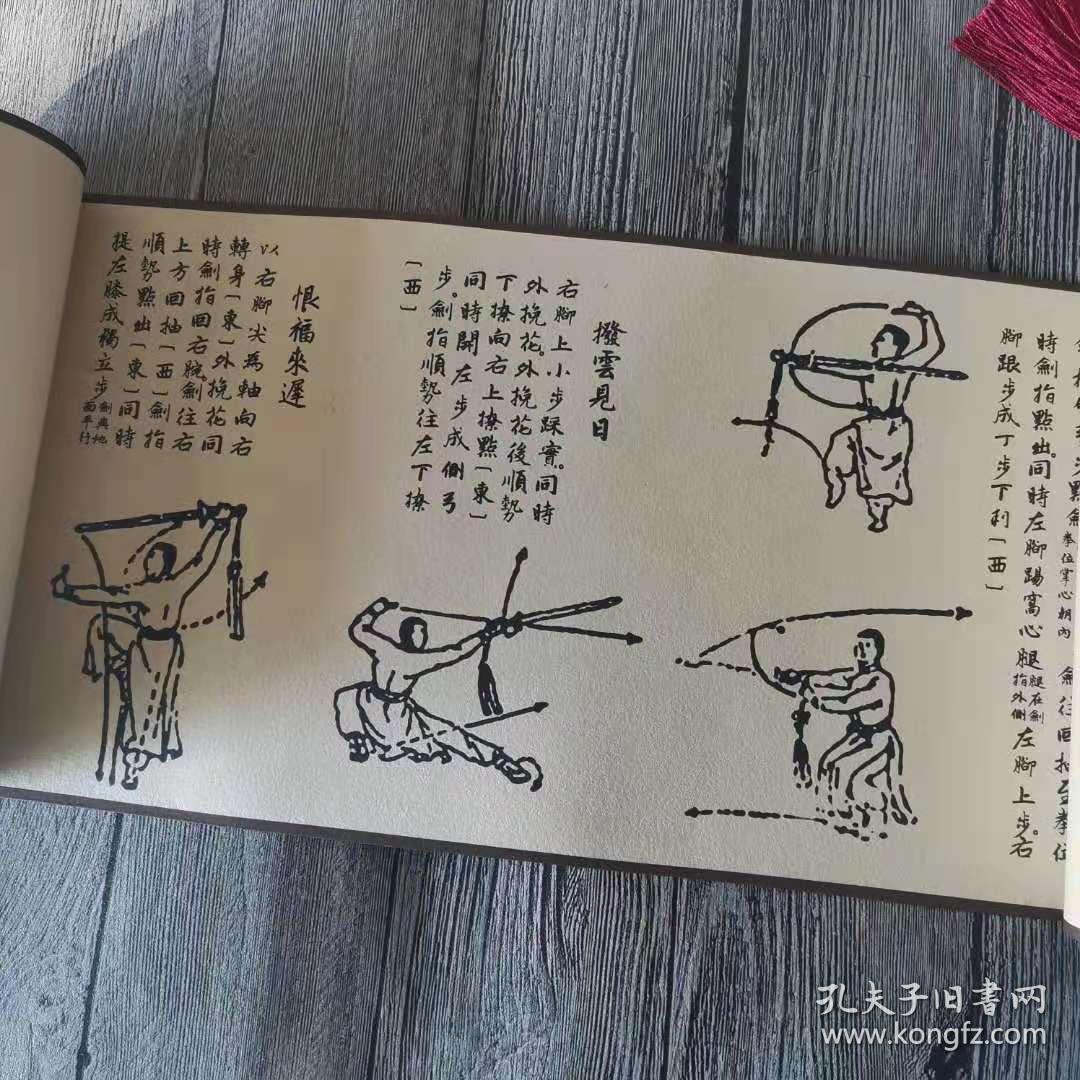 時劍指點出。同時左腳踢窩心腿腿在劍指外側左腳上步。右
腳跟步成丁步下刹〔西〕
撥雲見日
右腳上小步踩實。同時
外挽花。外挽花後順勢
下撩向右上撩點〔東〕
同時開左步成側弓
步。劍指順勢往左下撩
〔西〕
恨福來遲
以右腳尖為軸向右
轉身〔東〕外挽花同
時劍指回右腕。劍往右
上方回抽〔西〕劍指
順勢點出〔東〕同時
提左膝成獨立步劍與地面平行
孔夫子旧书网
www.kongfz.com